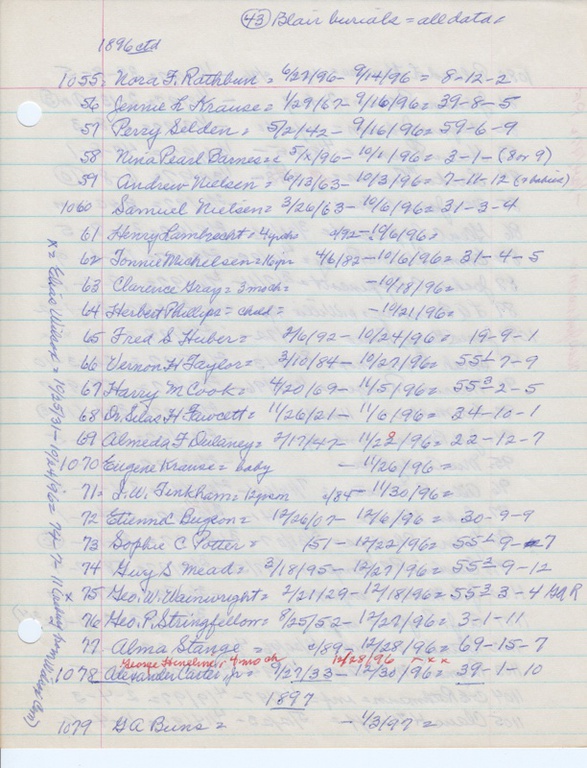 (43) Blair burials = all data =
1896 ctd
1055. Nora F. Rathbun = 6/27/96 - 9/14/96 = 8-12-2
56 Jennie L Krause = 1/29/67 - 9/16/96 = 39-8-5
57 Perry Selden = 5/2/42 - 9/16/96 = 59-6-9
58 Nina Pearl Barnes = c 5/x/96 - 10/1/96 = 3-1-(8 or 9)
59 Andrew Nielsen = 6/13/63 - 10/3/96 = 7-11-12
1060 Samuel Nielsen = 3/26/63 - 10/6/96 = 31-3-4
61 Henry Lambrecht = 4 c/92 - 10/6/96 =
62 Tonnie Michelsen = 4/6/82 - 10/6/96 = 31-4-5
63 Clarence Gray = 3 moch = - 10/18/96 =
64 Herbert Phillips = child = - 10/21/96 =
65 Fred S Huber = 2/6/92 - 10/24/96 = 19-9-1
66 Vernon H Taylor = 2/10/84 - 10/27/96 = 55 1-7-9
67 Harry M Cook = 4/20/69 - 11/5/96 = 55 3-2-5
68 Dr. Silas H Fawcett = 11/26/21 - 11/6/96 = 34-10-1
69 Almeda F Dulaney = 2/17/47 - 11/22/96 = 22-12-7
1070 Eugene Krause = baby - 11/26/96 =
71 = J.W. Finkham = c/84 - 11/30/96 =
72 Etienne Bugeon = 12/26/07 - 12/6/96 = 30-9-9
73 Sophie C Potter = /51 - 12/22/96 = 55 1-9-7
74 Guy S Mead = 2/18/95 - 12/27/96 = 55 3-9-12
75 Geo. W. Wainwright = 2/21/29 - 12/18/96 = 55 3 3-4 GAR
76 Geo. P. Stringfellow = 8/25/52 - 12/27/96 = 3-1-11
77 Alma Stange = c/89 - 12/28/96 = 69-15-7
George Hineline, 4 moch 12/28/96 - x x x
1078 Alexander Carter, jr = 9/27/33 - 12/30/96 = 39-1-10
1897
1079 G A Buns = - 1/3/97 =
x = Edwin = 10/25/31 - 10/24/96 = 74-7-11